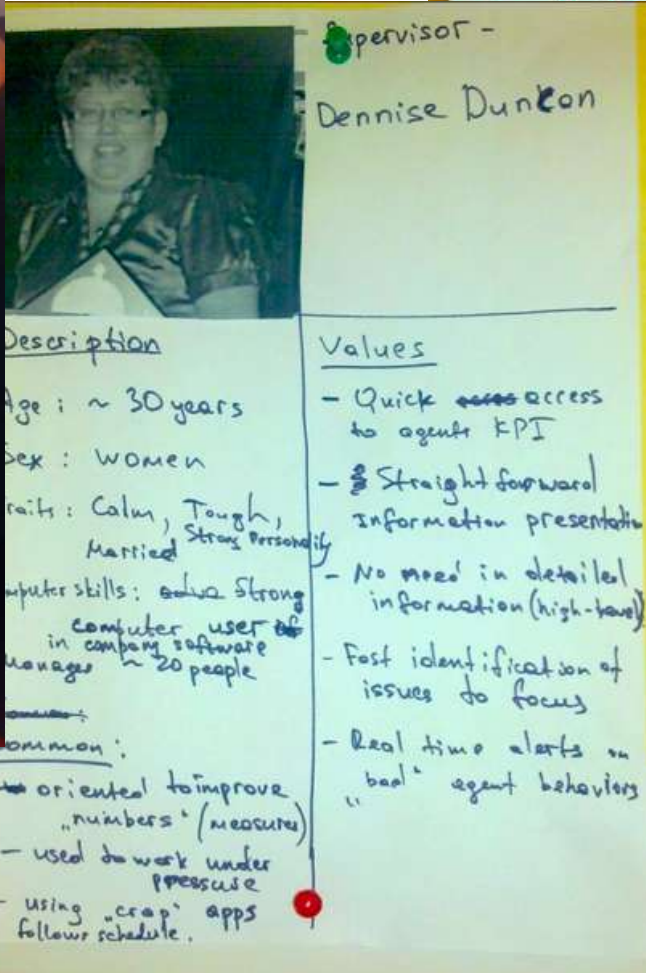 Supervisor -
Dennise Duncon
Description
Age : ~ 30 years
Sex : women
Traits : Calm, Tough,
Married Strong Personality
Computer skills : Strong
computer user
in company software
Manages ~ 20 people
Common :
oriented to improve
„numbers“ (measures)
- used to work under
pressure
- using „crap“ apps
follows schedule.
Values
- Quick access
to agents KPI
- Straight forward
Information presentation
- No need in detailed
information (high-level)
- Fast identification of
issues to focus
- Real time alerts on
„bad“ agent behaviors